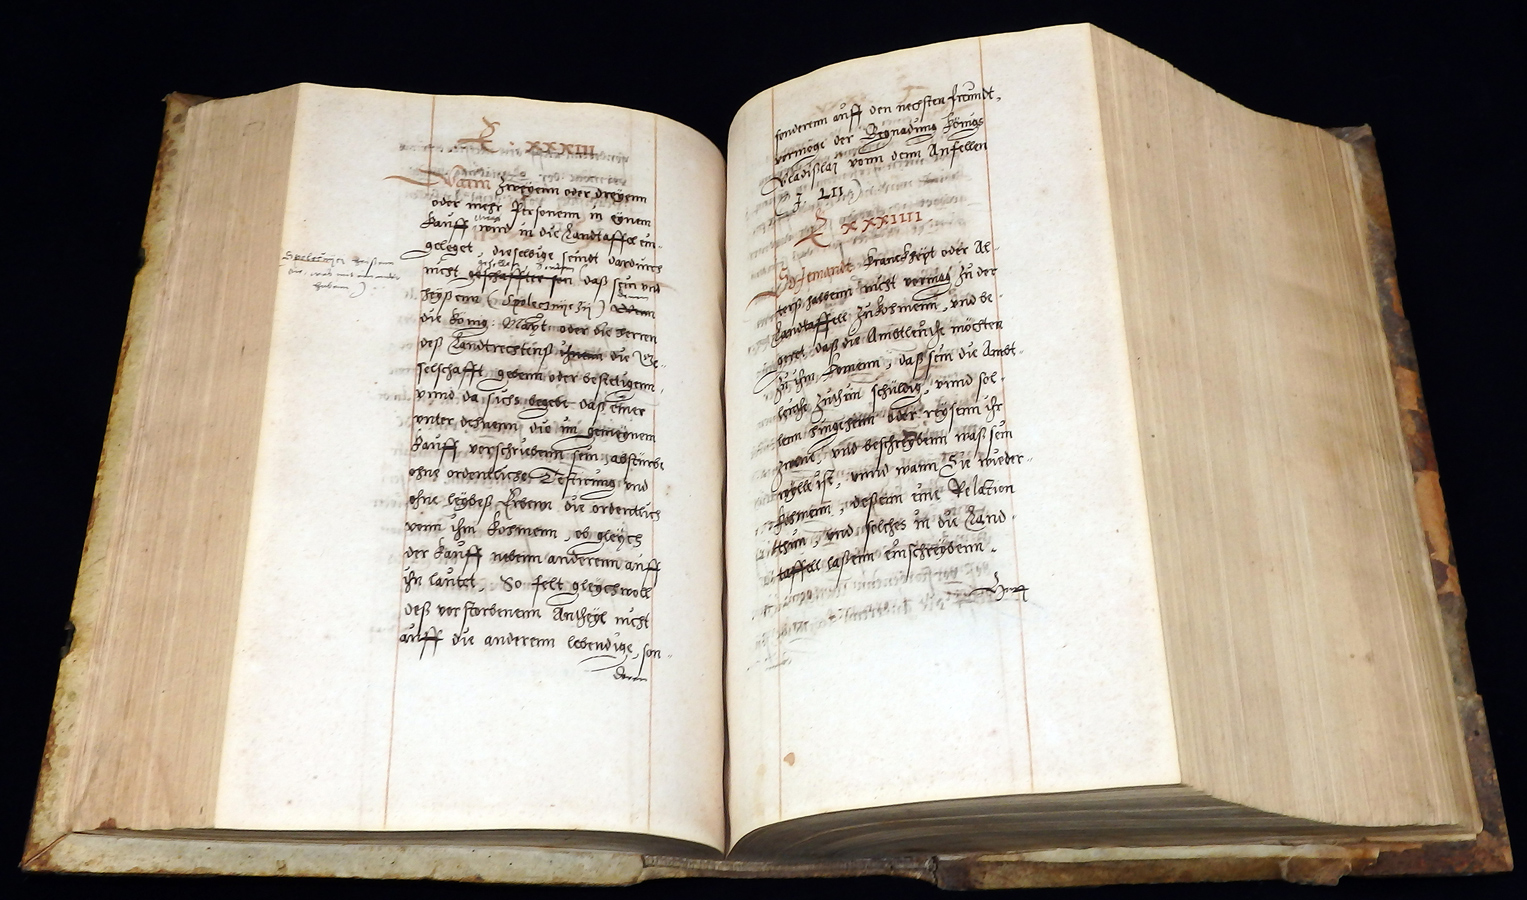 E. XXXIII
Wann Zweyenn oder dreyenn
oder mehr Personenn in eynem
Kauff wird in die Landtaffel ein-
geleget, dieselbige seindt dardurch
nicht daß sein und
heyßenn (Spolecznie Zij)
die König: Mayt oder die herren
deß Landtrechtenß ihnenn die Ge-
selschafft gebenn oder bestetigenn.
vnnd da sichs begebe daß einer
vnter dehnenn die im gemeynem
kauff verschriebenn sein abstürbe
ohne ordentliche Testirung vnd
ohne leybeß Erbenn die ordentlich
vonn ihm kohmenn, ob gleych
der kauff nebenn anderenn auff
ihn lautet, So felt gleychwoll
deß verstorbenenn Antheyl nicht
auff die anderenn lebendige, son-
deren
sonderenn auff den nechsten freundt,
vermöge der Begnadung Königs
Vladislai vonn denn Anfellen
J. LII.)
E XXXIIII
So Jemandt kranckheyt oder Al-
terß halbenn nicht vermag zu der
Landtaffell zukohmenn, vnd be-
geret, daß die Ambtleutte möchten
zu ihm komenn, daß sein die Ambt-
leutte zuthun schuldig, vnnd sol-
lenn hingehenn oder reysenn ihr
zweene, vnd beschreybenn waß sein
wylle ist, vnnd wann Sie wieder-
kohmenn, deßenn eine Relation
thun, vnd solches in die Land-
taffell laßenn einschreybenn.